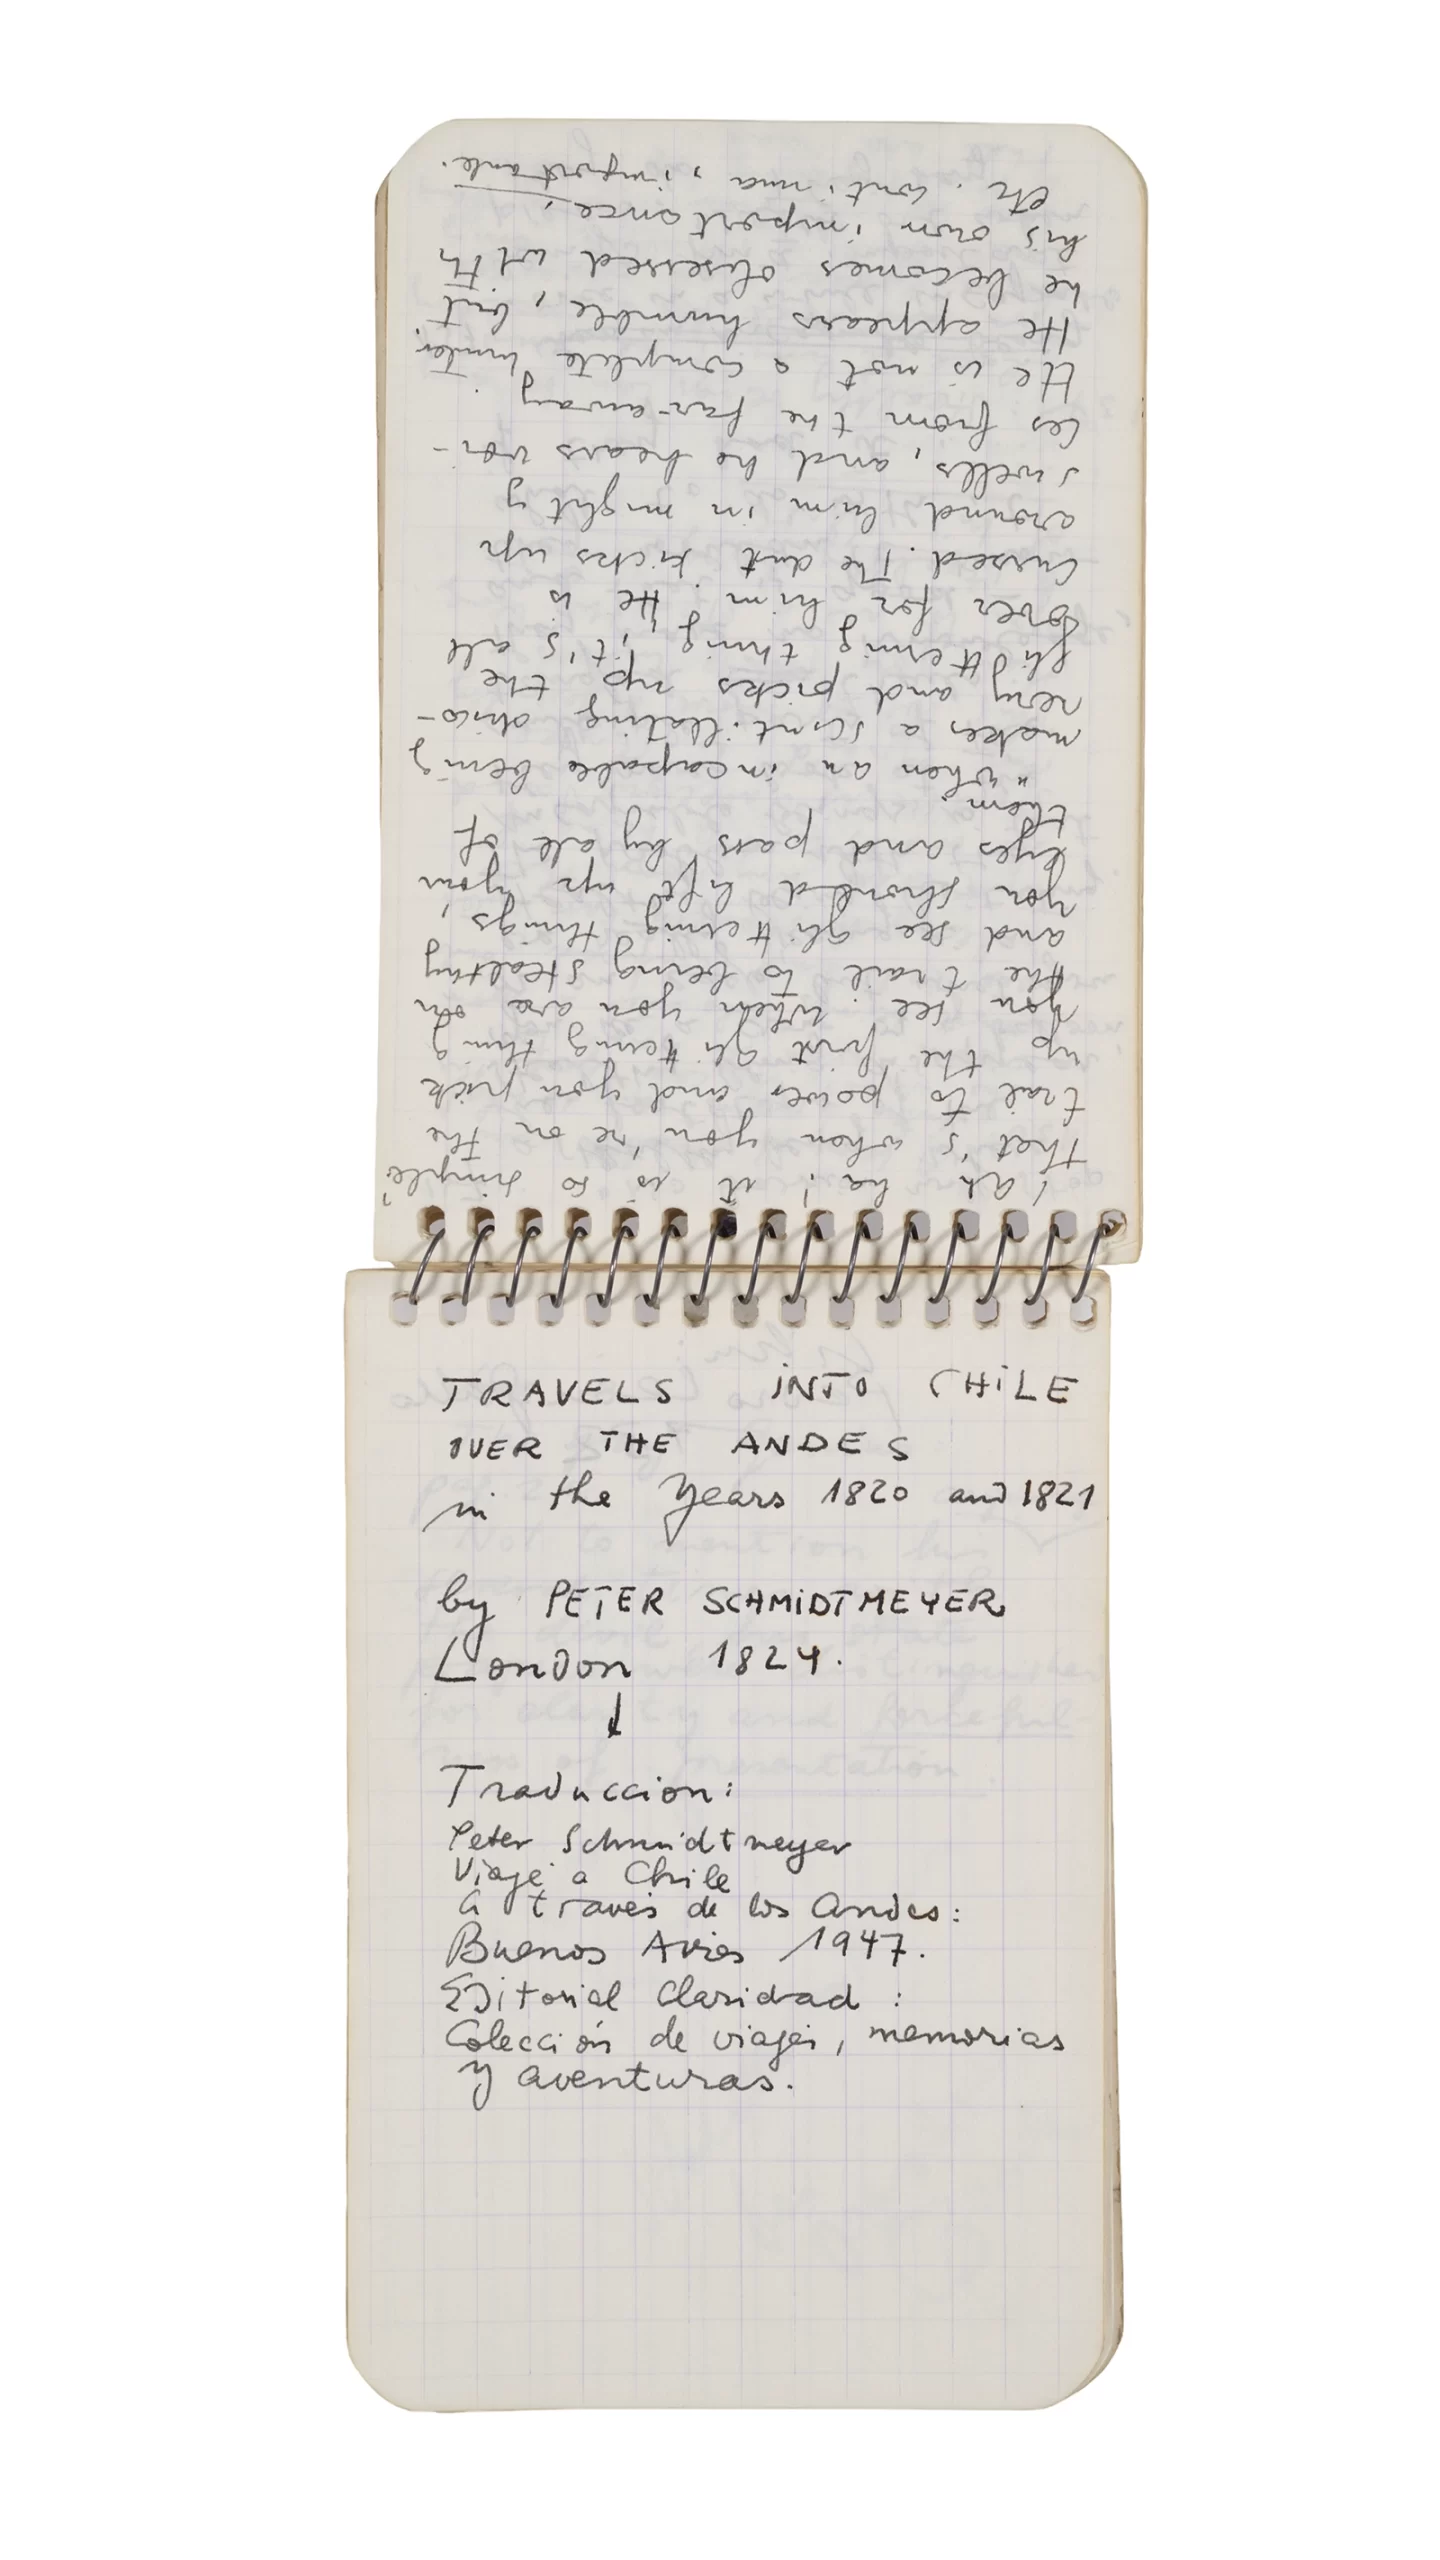 TRAVELS INTO CHILE
OVER THE ANDES
in the Years 1820 and 1821
by PETER SCHMIDTMEYER
London 1824.
↓
Traduccion:
Peter Schmidtmeyer
Viaje a Chile
a través de los Andes:
Buenos Aires 1947.
Editorial Claridad :
Colección de viajes, memorias
y aventuras.
ah ha! it is so simple,
that's when you're on the
trail to power and you pick
up the first glittering thing
you see. when you are on
the trail to being stealthy
and see glittering things,
you should lift up your
eyes and pass by all of
them.
"when an incapable being
makes a scintillating disco-
very and picks up the
glittering thing, it's all
over for him. He is
cursed. The dust kicks up
around him in mighty
swells, and he hears voi-
ces from the far-away.
He is not a complete hunter.
He appears humble, but
he becomes obsessed with
his own importance,
etc. continua, importante.